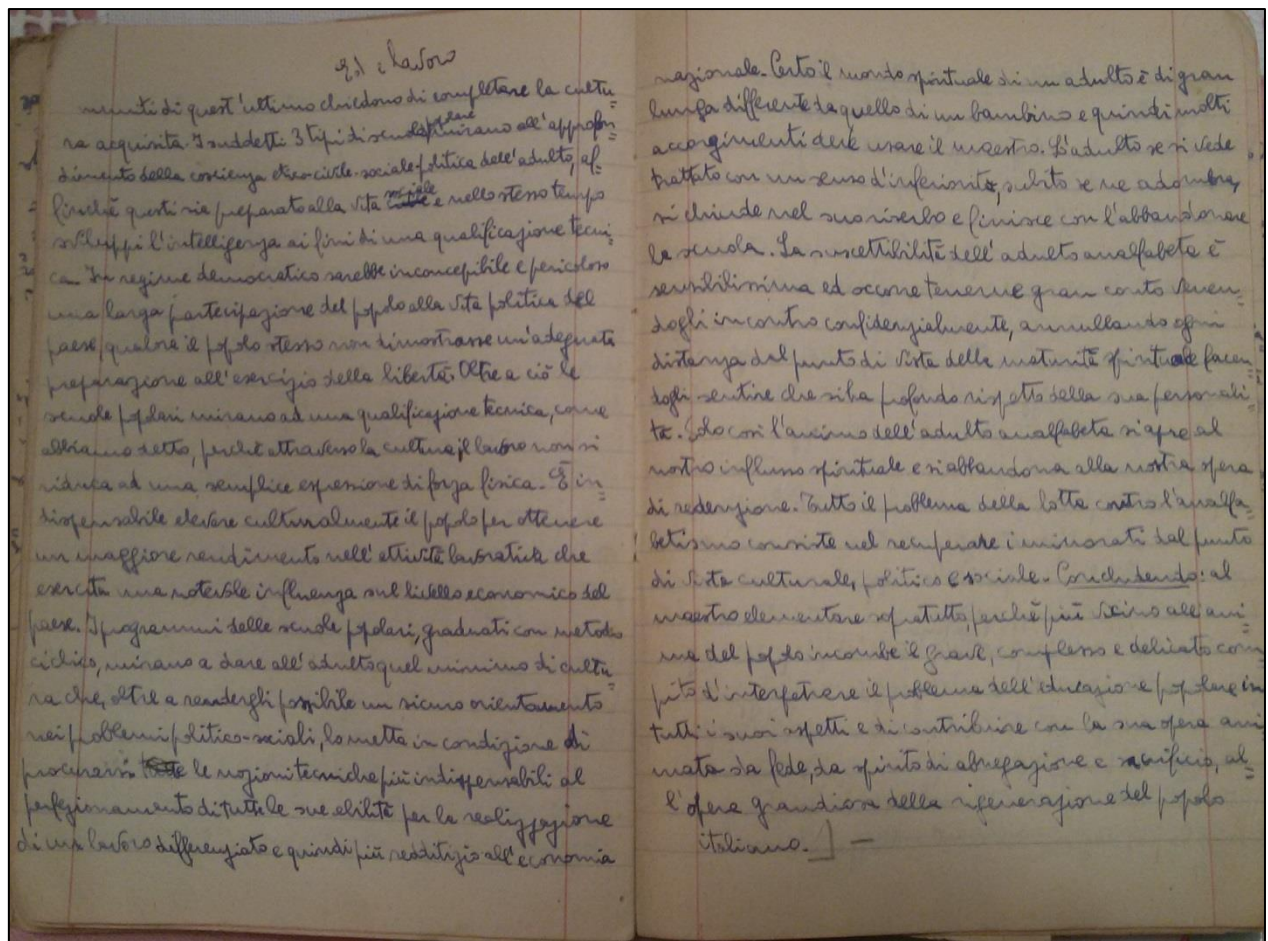 Ed. e lavoro
muniti di quest'ultimo chiedono di completare la cultu=
ra acquisita. I suddetti 3 tipi di scuola popolare mirano all'approfon=
dimento della coscienza etico-civile-sociale-politica dell'adulto, af=
finchè questi sia preparato alla vita sociale e nello stesso tempo
sviluppi l'intelligenza ai fini di una qualificazione tecni=
ca. In regime democratico sarebbe inconcepibile e pericoloso
una larga partecipazione del popolo alla vita politica del
paese, qualora il popolo stesso non dimostrasse un'adeguata
preparazione all'esercizio della libertà. Oltre a ciò le
scuole popolari mirano ad una qualificazione tecnica, come
abbiamo detto, perchè attraverso la cultura, il lavoro non si
riduca ad una semplice espressione di forza fisica. È in=
dispensabile elevare culturalmente il popolo per ottenere
un maggiore rendimento nell'attività lavorativa che
esercita una notevole influenza sul livello economico del
paese. I programmi delle scuole popolari, graduati con metodo
ciclico, mirano a dare all'adulto quel minimo di cultu=
ra che, oltre a rendergli possibile un sicuro orientamento
nei problemi politico-sociali, lo metta in condizione di
procurarsi le nozioni tecniche più indispensabili al
perfezionamento di tutte le sue abilità per la realizzazione
di un lavoro differenziato e quindi più redditizio all'economia
nazionale. Certo il mondo spirituale di un adulto è di gran
lunga differente da quello di un bambino e quindi molti
accorgimenti deve usare il maestro. L'adulto se si vede
trattato con un senso d'inferiorità, subito se ne adombra,
si chiude nel suo riserbo e finisce con l'abbandonare
la scuola. La suscettibilità dell'adulto analfabeta è
sensibilissima ed occorre tenerne gran conto venen=
dogli incontro confidenzialmente, annullando ogni
distanza dal punto di vista della maturità spirituale facen=
dogli sentire che si ha profondo rispetto della sua personali=
tà. Solo così l'animo dell'adulto analfabeta si apre al
nostro influsso spirituale e si abbandona alla nostra opera
di redenzione. Tutto il problema della lotta contro l'analfa=
betismo consiste nel recuperare i minorati dal punto
di vista culturale, politico e sociale. Concludendo: al
maestro elementare sopratutto, perchè più vicino alle ani=
me del popolo incombe il grave, complesso e delicato com=
pito d'interpetrare il problema dell'educazione popolare in
tutti i suoi aspetti e di contribuire con la sua opera ani=
mata da fede, da spirito di abnegazione e sacrificio, al=
l'opera grandiosa della rigenerazione del popolo
italiano. ] —